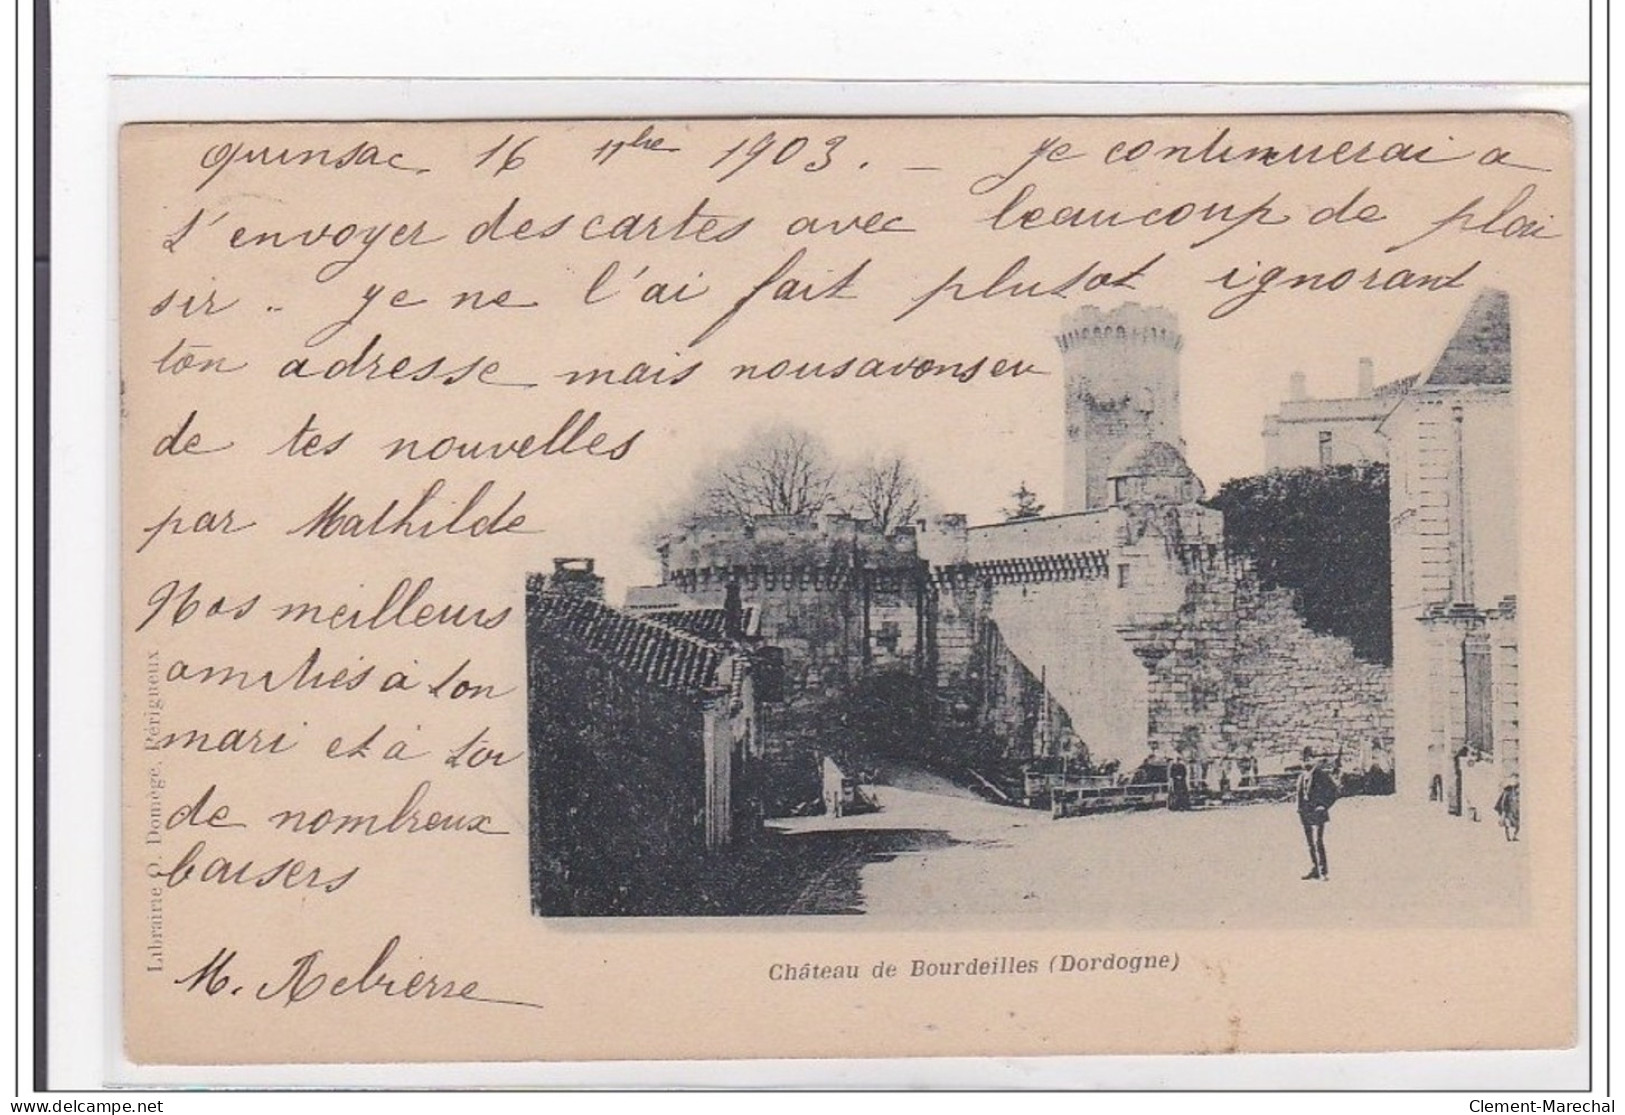 Quinsac, 16 11bre 1903. — Je continuerai a
t'envoyer des cartes avec beaucoup de plai
sir .. Je ne l'ai fait plutot ignorant
ton adresse mais nous avons eu
de tes nouvelles
par Mathilde
Nos meilleurs
amitiés à ton
mari et à toi
de nombreux
baisers
M. Rebierre
Château de Bourdeilles (Dordogne)
Librairie O. Domège, Périgueux
delcampe.net
Clement-Marechal